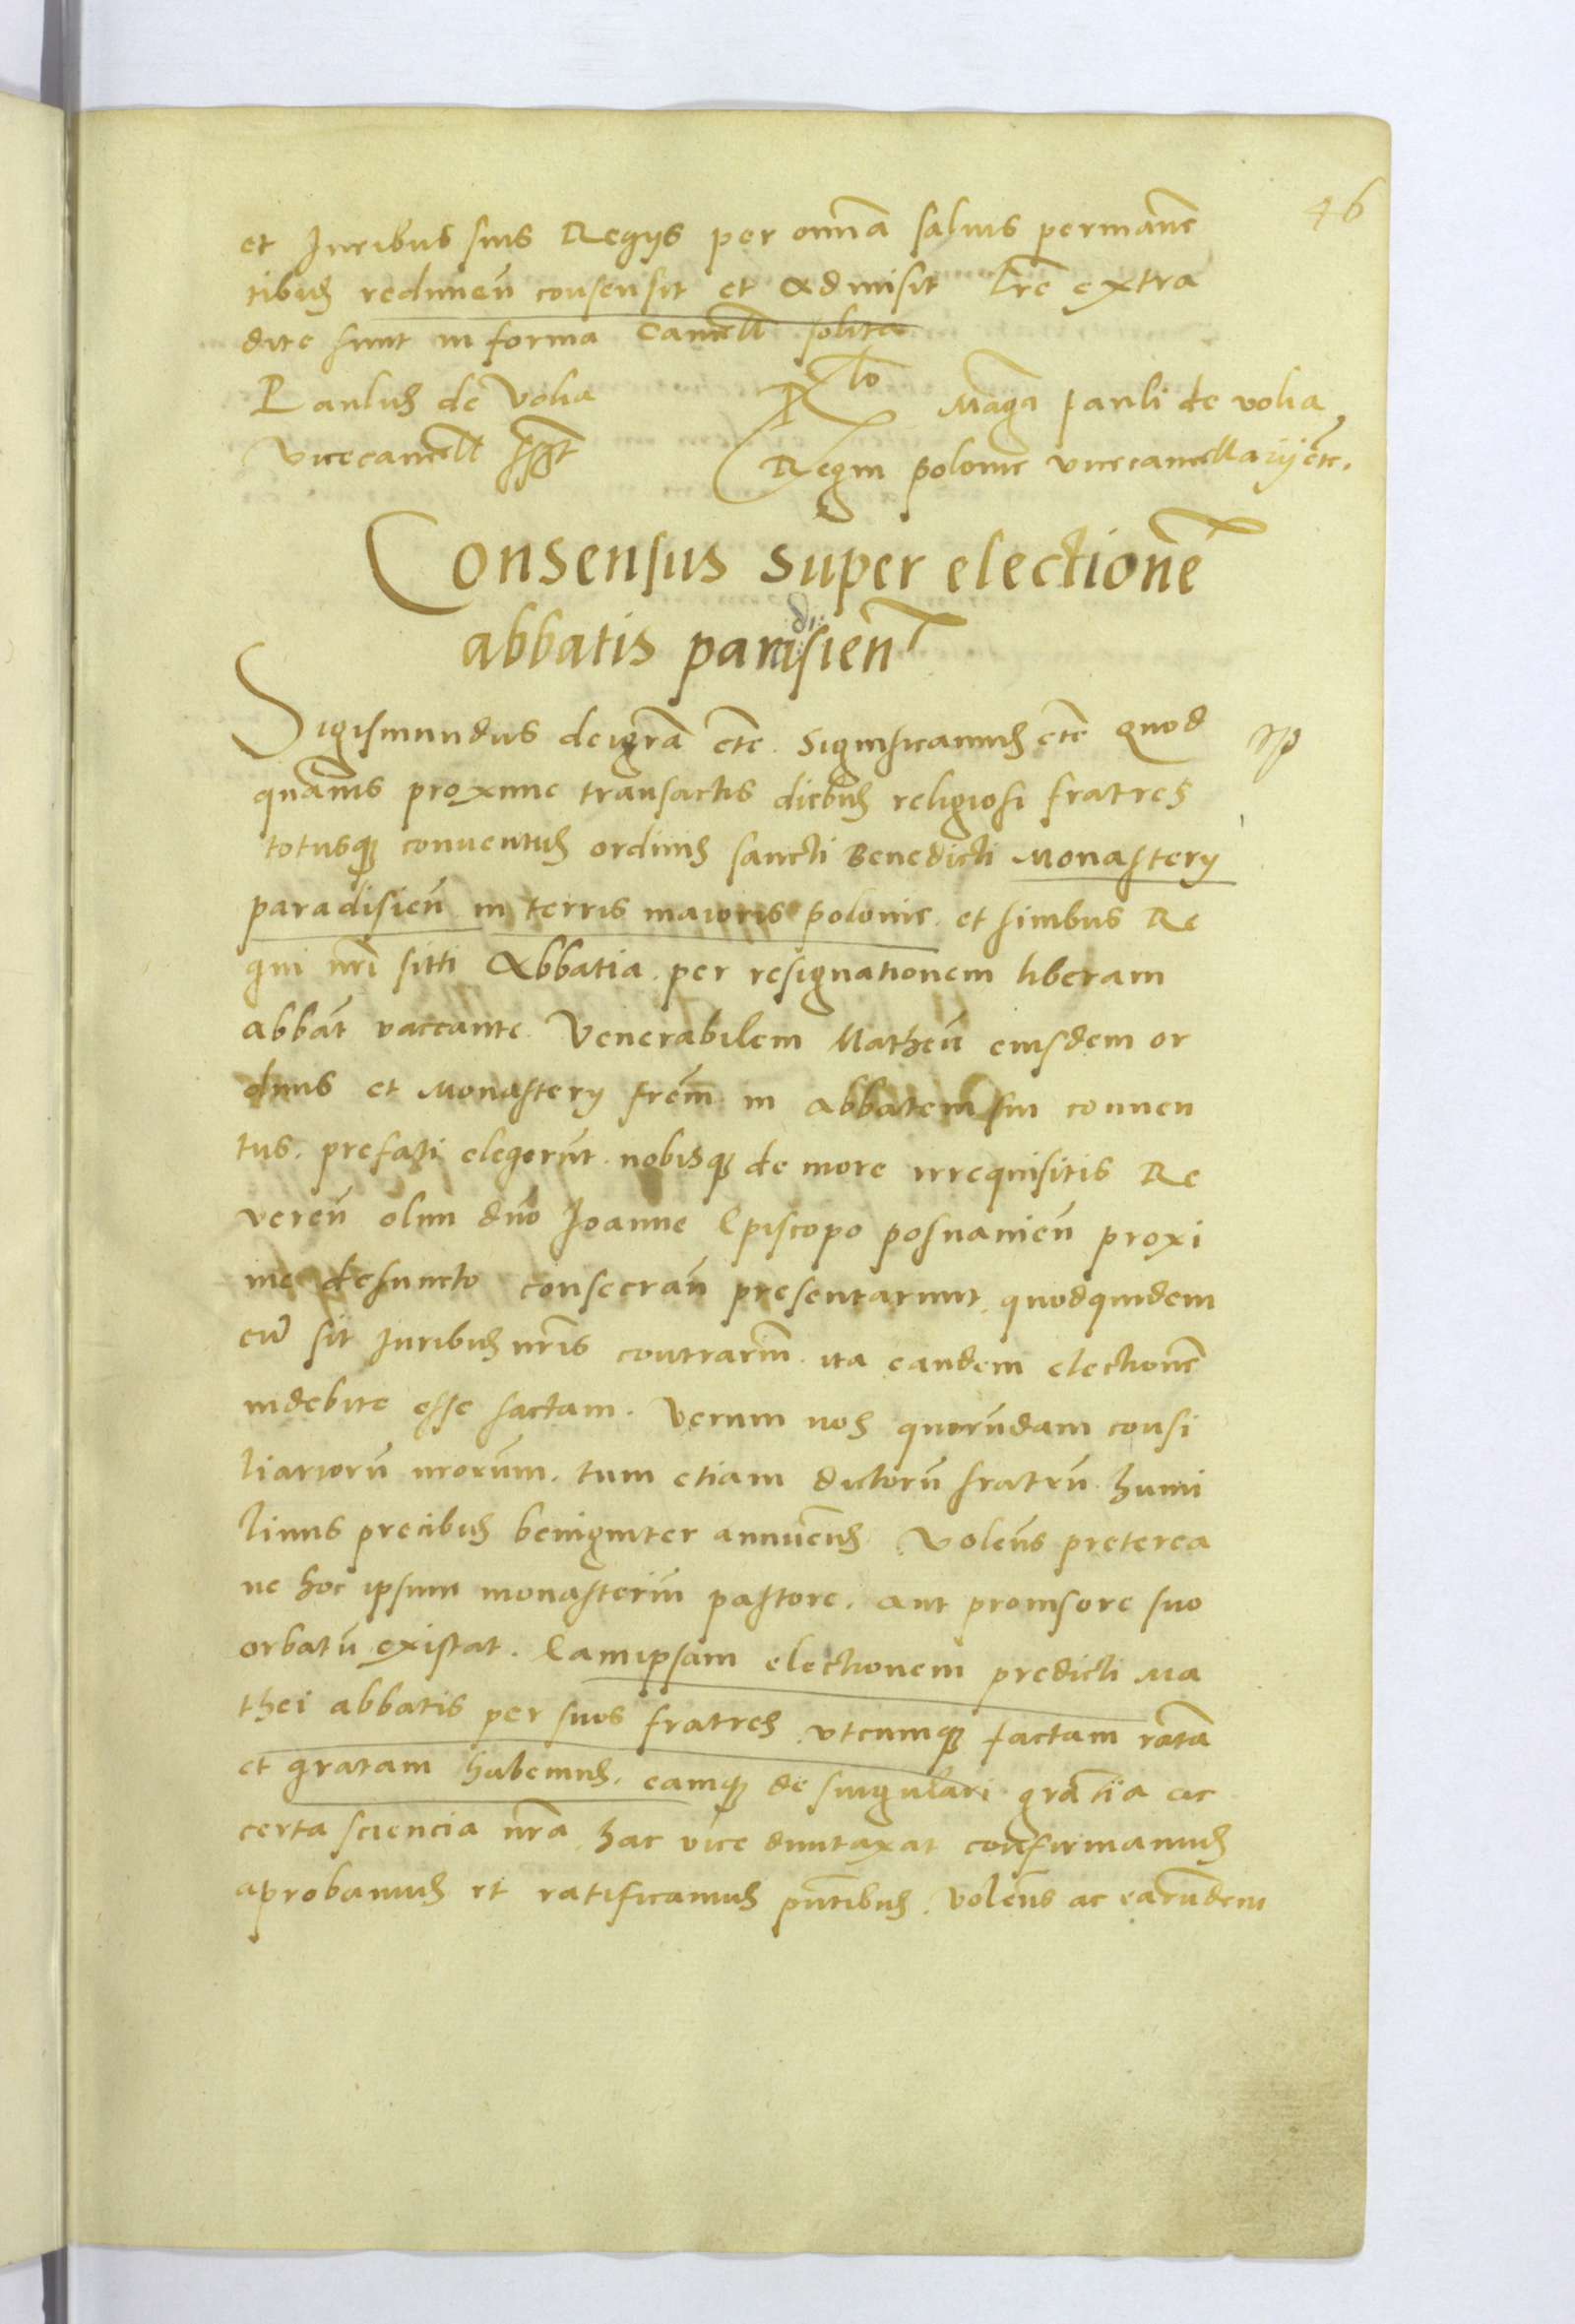 46
et Juribus suis Regijs per om̄ia saluis permanē
tibus redimen̄ consensit et admisit Lr̄e extra
dite sunt in forma Cancell solita
Paulus de Volia
Vicecancell sst
Rlo Maḡci pauli de volia
Regni polonie vicecancellarij etc̄.
Consensus super electionē
abbatis paradisien̄
Sigismundus dei gr̄a etc̄. Significamus etc̄ Quod
quāuis proxime transactis diebus religiosi fratres
totusq3 conuentus ordinis sancti Benedicti Monastery
paradisien̄ in terris maioris polonie. et finibus Re
gni nr̄i sitti Abbatia. per resignationem liberam
abbāt vaccante. Venerabilem Matheū eiusdem or
dinis et Monastery frēm in abbatem sui conuen
tus. prefati elegerūt. nobisq3 de more irrequisitis Re
veren̄ olim dn̄o Joanne Episcopo posnanien̄ proxi
me defuncto consecran̄ presentarunt. quodquidem
cū sit Juribus nr̄is contrariū. ita eandem electionē
indebite esse factam. Verum nos quorūdam consi
liariorū nr̄orum. tum etiam dictorū fratrū. humi
limis precibus benigniter annuen̄s. Volen̄s preterea
ne hoc ipsum monasteriū pastore. aut prouisore suo
orbatū existat. Eamipsam electionem predicti Ma
thei abbatis per suos fratres vtcumq3 factam ratā
et gratam habemus. eamq3 de singulari gratia ac
certa sciencia nr̄a. hac vice duntaxat confirmamus
aprobamus et ratificamus pn̄tibus. Volen̄s ac earūdem